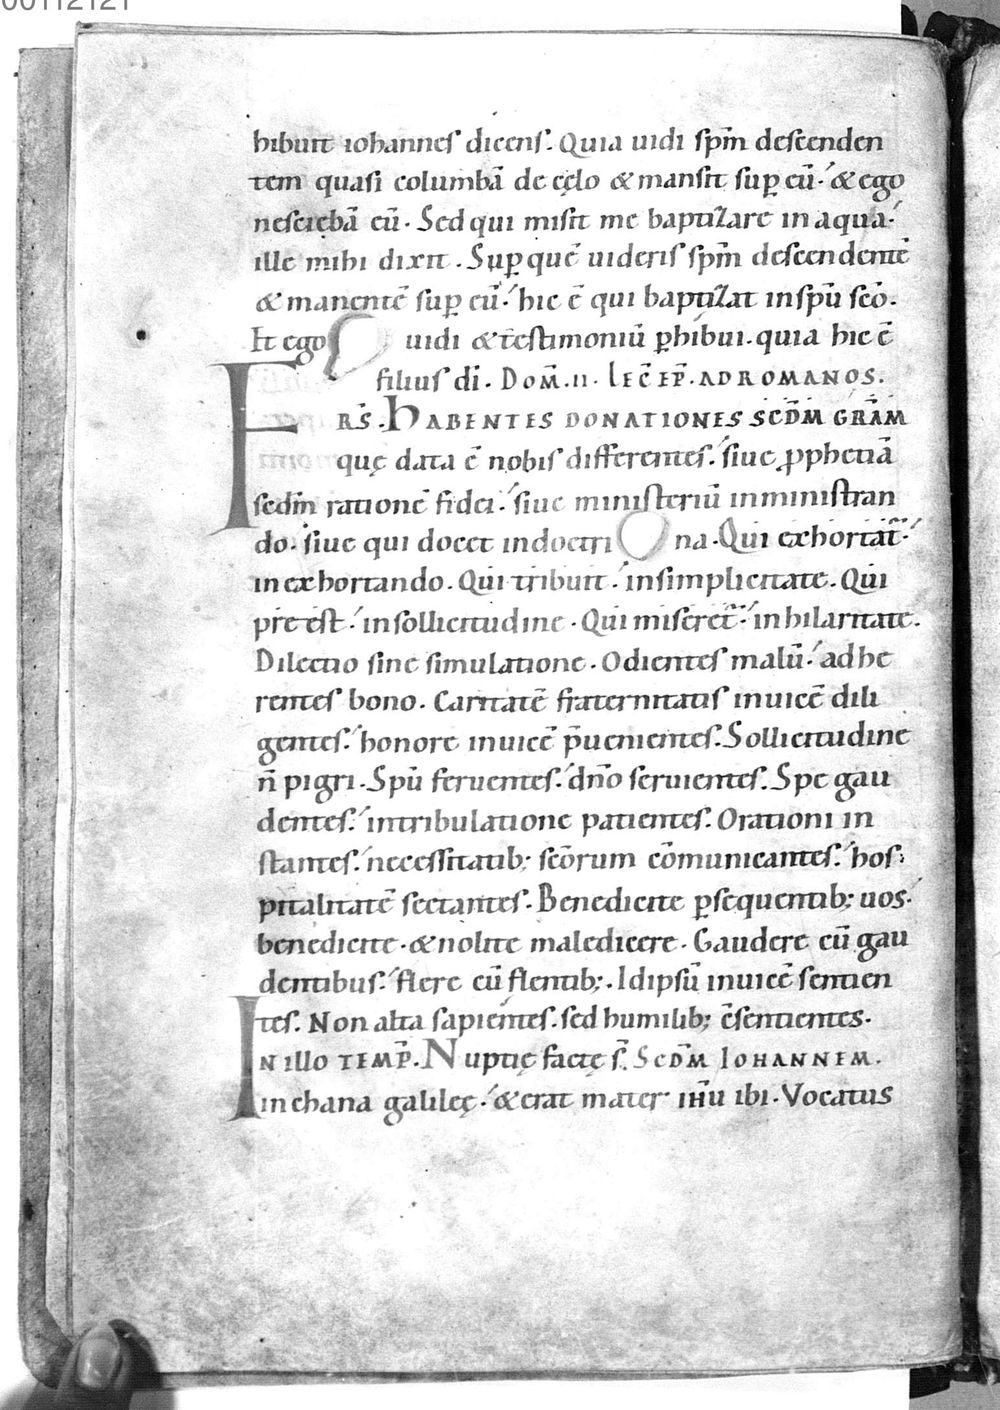 00112121
hibuit iohannes dicens. Quia uidi sp̄m descenden
tem quasi columbā de cęlo & mansit sup̱ eū. & ego
nesciebā eū. Sed qui misit me baptizare in aqua.
ille mihi dixit. Sup̱ quē uideris sp̄m descendentē
& manentē sup̱ eū. hic ē qui baptizat in sp̄u sc̄o.
Et ego uidi & testimoniū ꝑhibui. quia hic ē
filius dī. DOM̄. II. LEC̄ EP̄. AD ROMANOS.
FRS̄. HABENTES DONATIONES SCD̄M GRĀM
quę data ē nobis differentes. siue ꝓphetiā
scdm̄ rationē fidei. siue ministeriū in ministran
do. siue qui docet in doctrina. Qui exhortat̄.
in exhortando. Qui tribuit. in simplicitate. Qui
preest. in sollicitudine. Qui miseret̄. in hilaritate.
Dilectio sine simulatione. Odientes malū. adhe
rentes bono. Caritatē fraternitatis inuicē dili
gentes. honore inuicē p̄uenientes. Sollicitudine
n̄ pigri. Sp̄u feruentes. dn̄o seruientes. Spe gau
dentes. in tribulatione patientes. Orationi in
stantes. necessitatib; sc̄orum cōmunicantes. hos
pitalitatē sectantes. Benedicite ꝑsequentib; uos.
benedicite. & nolite maledicere. Gaudere cū gau
dentibus. flere cū flentib;. Idipsū inuicē sentien
tes. Non alta sapientes. sed humilib; c̄sentientes.
IN illo TEMP̄. Nuptię factę s̄. SCD̄M IOHANNEM.
in chana galileę. & erat mater ih̄u ibi. Vocatus